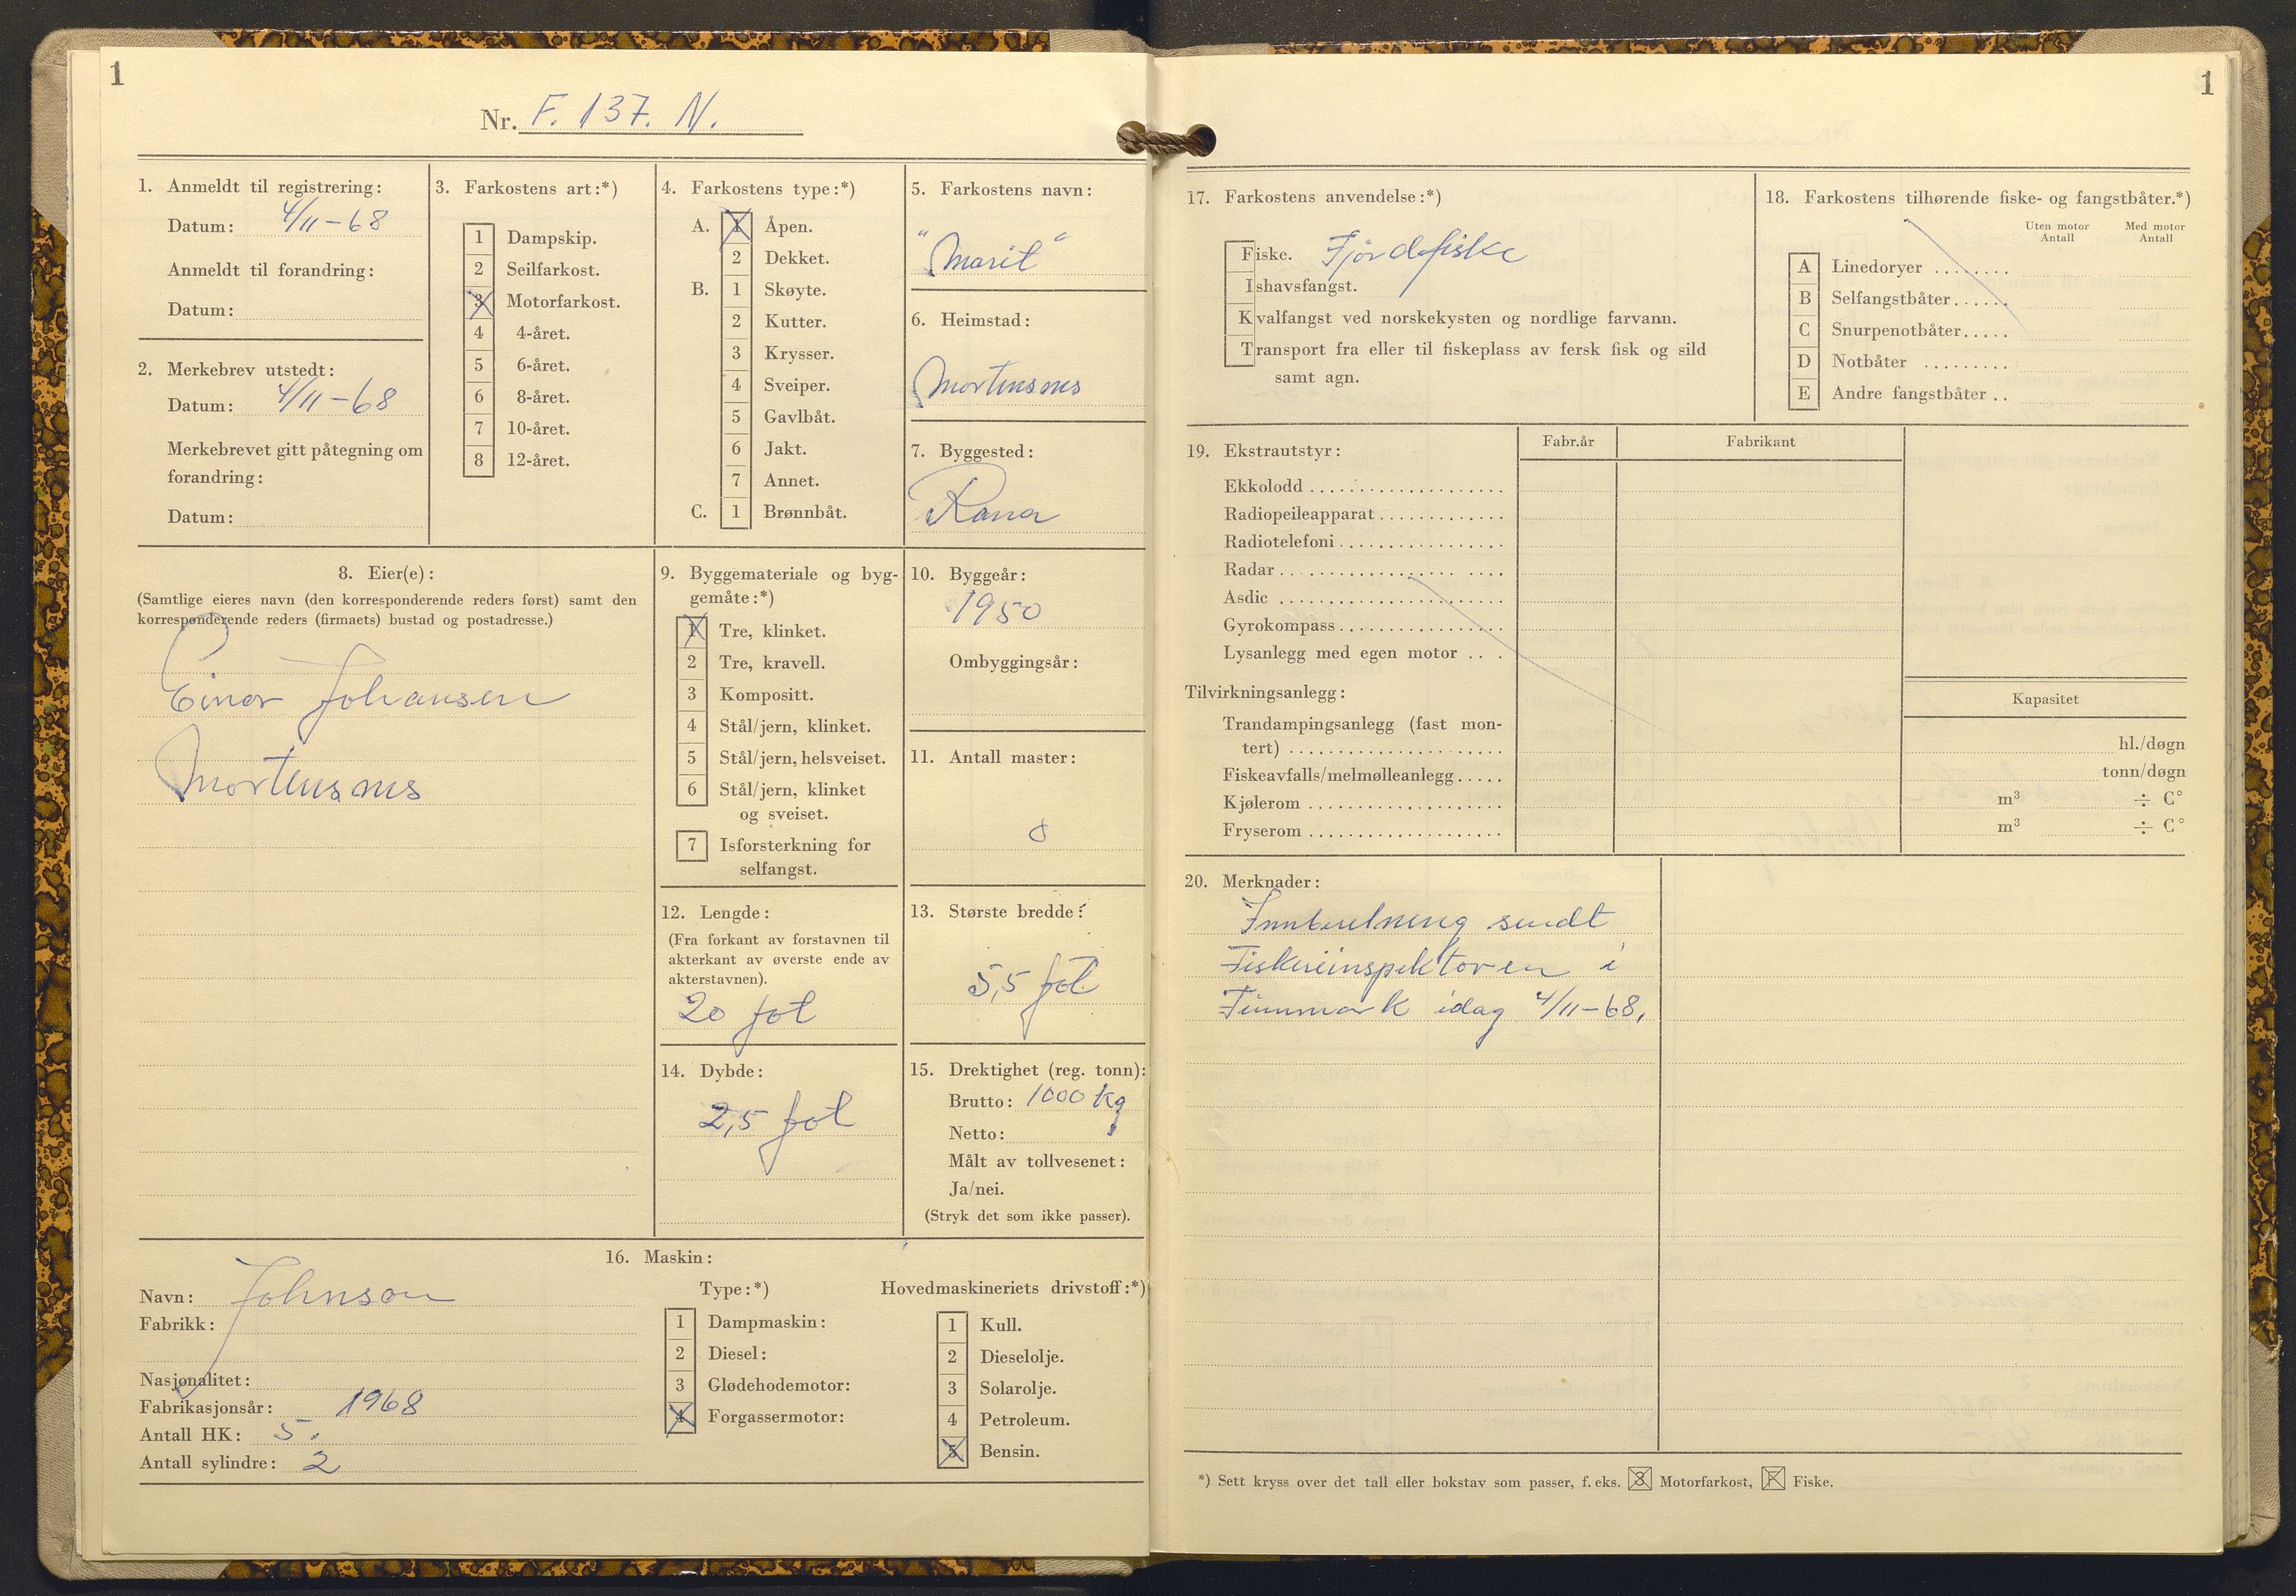 1
Nr. F. 137. N.
1. Anmeldt til registrering:
Datum: 4/11-68
Anmeldt til forandring:
Datum:
2. Merkebrev utstedt:
Datum: 4/11-68
Merkebrevet gitt påtegning om
forandring:
Datum:
3. Farkostens art:*)
1 Dampskip.
2 Seilfarkost.
3 Motorfarkost.
4 4-året.
5 6-året.
6 8-året.
7 10-året.
8 12-året.
4. Farkostens type:*)
A. 1 Åpen.
2 Dekket.
B. 1 Skøyte.
2 Kutter.
3 Krysser.
4 Sveiper.
5 Gavlbåt.
6 Jakt.
7 Annet.
C. 1 Brønnbåt.
5. Farkostens navn:
"Marit"
6. Heimstad:
Mortensnes
7. Byggested:
Rana
8. Eier(e):
(Samtlige eieres navn (den korresponderende reders først) samt den
korresponderende reders (firmaets) bustad og postadresse.)
Einar Johansen
Mortensnes
9. Byggemateriale og byg-
gemåte:*)
1 Tre, klinket.
2 Tre, kravell.
3 Kompositt.
4 Stål/jern, klinket.
5 Stål/jern, helsveiset.
6 Stål/jern, klinket
og sveiset.
7 Isforsterkning for
selfangst.
10. Byggeår:
1950
Ombyggingsår:
11. Antall master:
0
12. Lengde:
(Fra forkant av forstavnen til
akterkant av øverste ende av
akterstavnen).
20 fot
13. Største bredde:
5,5 fot
14. Dybde:
2,5 fot
15. Drektighet (reg. tonn):
Brutto: 1000 kg
Netto:
Målt av tollvesenet:
Ja/nei.
(Stryk det som ikke passer).
16. Maskin:
Navn: Johnson
Fabrikk:
Nasjonalitet:
Fabrikasjonsår: 1968
Antall HK: 5.
Antall sylindre: 2
Type:*)
1 Dampmaskin:
2 Diesel:
3 Glødehodemotor:
4 Forgassermotor:
Hovedmaskineriets drivstoff:*)
1 Kull.
2 Dieselolje.
3 Solarolje.
4 Petroleum.
5 Bensin.
1
17. Farkostens anvendelse:*)
Fiske. Fjordfiske
Ishavsfangst.
Kvalfangst ved norskekysten og nordlige farvann.
Transport fra eller til fiskeplass av fersk fisk og sild
samt agn.
18. Farkostens tilhørende fiske- og fangstbåter.*)
Uten motor Med motor
Antall Antall
A Linedoryer ........
B Selfangstbåter......
C Snurpenotbåter.....
D Notbåter .........
E Andre fangstbåter ..
19. Ekstrautstyr:
Fabr.år Fabrikant
Ekkolodd ....................
Radiopeileapparat.............
Radiotelefoni.................
Radar.......................
Asdic .......................
Gyrokompass.................
Lysanlegg med egen motor ...
Tilvirkningsanlegg:
Kapasitet
Trandampingsanlegg (fast mon-
tert) ...................... hl./døgn
Fiskeavfalls/melmølleanlegg..... tonn/døgn
Kjølerom .................... m³ ÷ C°
Fryserom .................... m³ ÷ C°
20. Merknader:
Innberetning sendt
Fiskeriinspektøren i
Finnmark idag 4/11-68.
*) Sett kryss over det tall eller bokstav som passer, f. eks. 3 Motorfarkost, F Fiske.